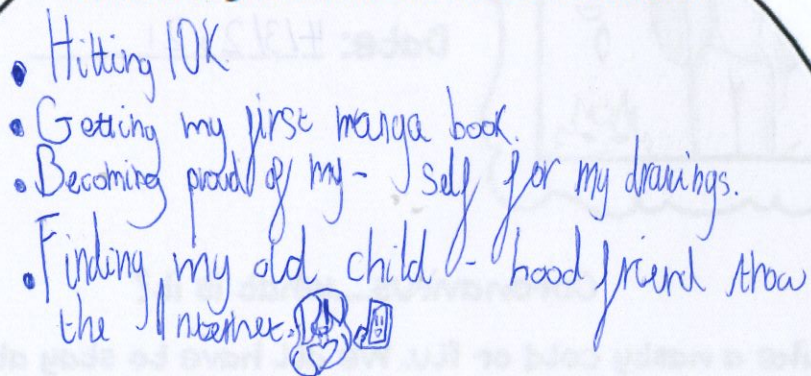 • Hitting 10K.
• Getting my first manga book.
• Becoming proud of my - self for my drawings.
• Finding my old child - hood friend throw
the Internet.